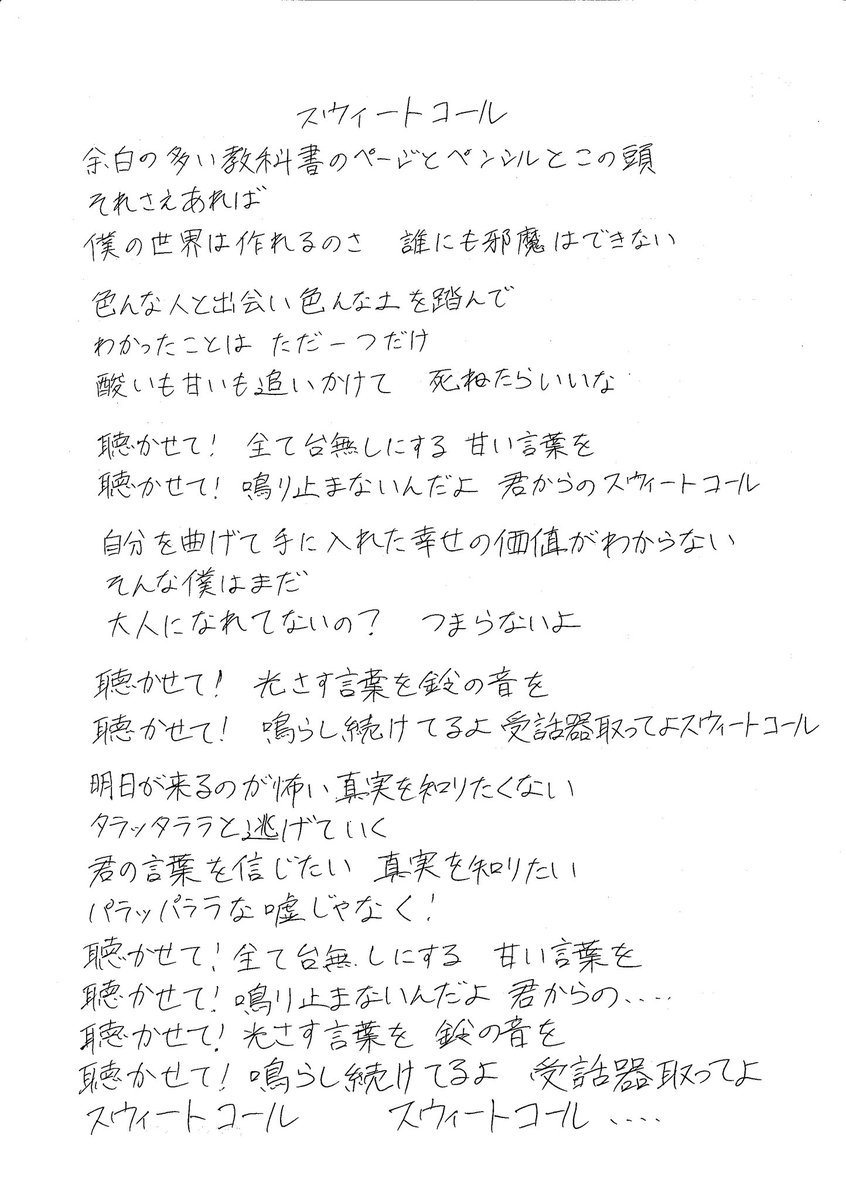 スウィートコール
余白の多い教科書のページとペンシルとこの頭
それさえあれば
僕の世界は作れるのさ 誰にも邪魔はできない
色んな人と出会い色んな土を踏んで
わかったことは ただ一つだけ
酸いも甘いも追いかけて 死ねたらいいな
聴かせて! 全て台無しにする 甘い言葉を
聴かせて! 鳴り止まないんだよ 君からのスウィートコール
自分を曲げて手に入れた幸せの価値がわからない
そんな僕はまだ
大人になれてないの? つまらないよ
聴かせて! 光さす言葉を鈴の音を
聴かせて! 鳴らし続けてるよ 受話器取ってよスウィートコール
明日が来るのが怖い 真実を知りたくない
タラッタララと逃げていく
君の言葉を信じたい 真実を知りたい
パラッパララな嘘じゃなく!
聴かせて! 全て台無しにする 甘い言葉を
聴かせて! 鳴り止まないんだよ 君からの、、、、
聴かせて! 光さす言葉を 鈴の音を
聴かせて! 鳴らし続けてるよ 受話器取ってよ
スウィートコール スウィートコール、、、、